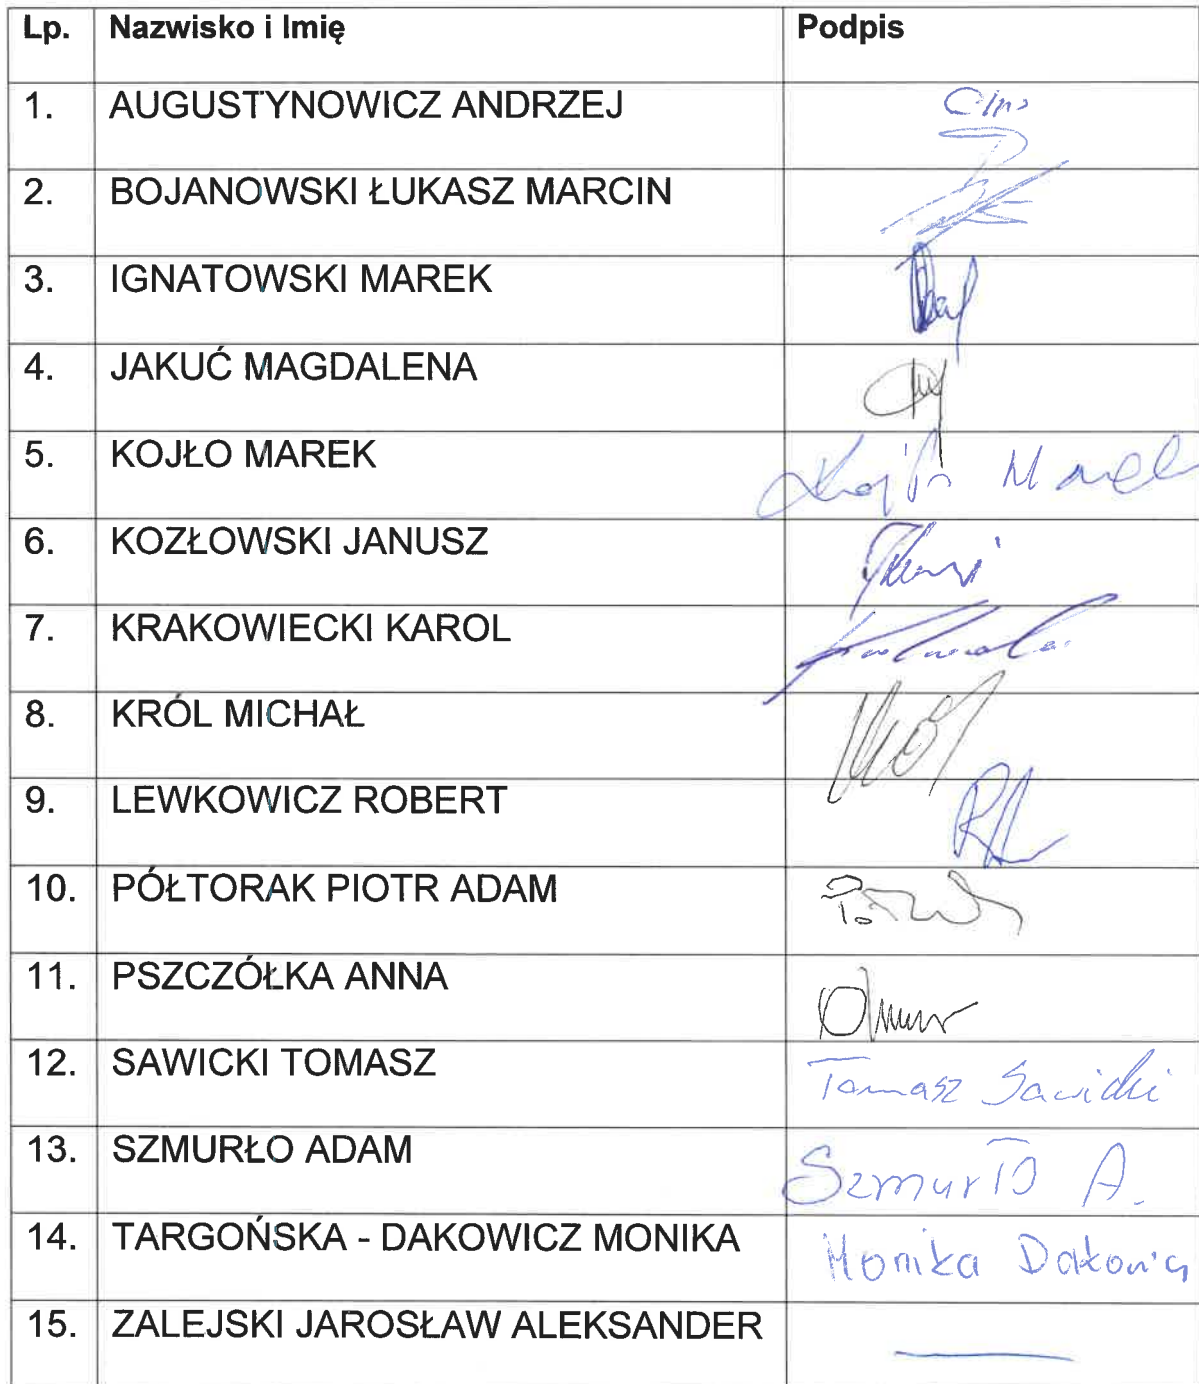 Lp. Nazwisko i Imię Podpis
1. AUGUSTYNOWICZ ANDRZEJ
2. BOJANOWSKI ŁUKASZ MARCIN
3. IGNATOWSKI MAREK
4. JAKUĆ MAGDALENA
5. KOJŁO MAREK Kojło Marek
6. KOZŁOWSKI JANUSZ
7. KRAKOWIECKI KAROL
8. KRÓL MICHAŁ Król
9. LEWKOWICZ ROBERT
10. PÓŁTORAK PIOTR ADAM
11. PSZCZÓŁKA ANNA
12. SAWICKI TOMASZ Tomasz Sawicki
13. SZMURŁO ADAM Szmurło A.
14. TARGOŃSKA - DAKOWICZ MONIKA Monika Dakowicz
15. ZALEJSKI JAROSŁAW ALEKSANDER